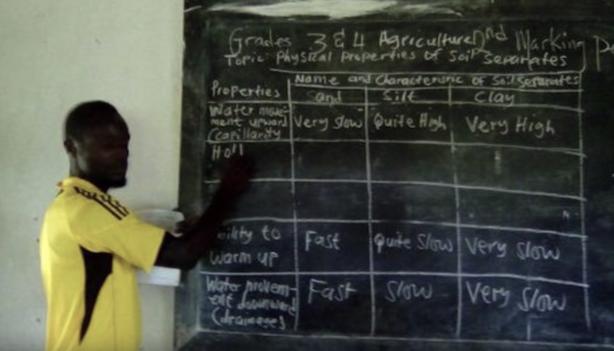 Grades 3 & 4 Agriculture 2nd Marking P
Topic: Physical Properties of Soil Separates
Name and Characteristic of Soil Separates
Properties Sand Silt Clay
Water move-
ment upward Very slow Quite High Very High
(capillarity
Holl
bility to Fast Quite Slow Very slow
warm up
Water movem- Fast Slow Very slow
ent downward
(drainages)